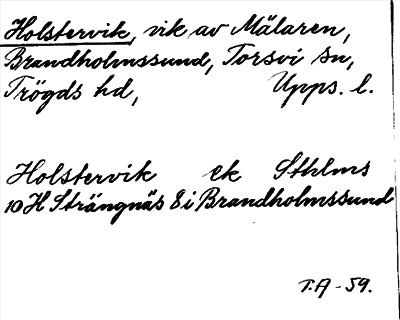 Holstervik, vik av Mälaren,
Brandholmssund, Torsvi sn,
Trögds hd, Upps. l.
Holstervik ek Sthlms
10 H Strängnäs 8 i Brandholmssund
T.A-59.